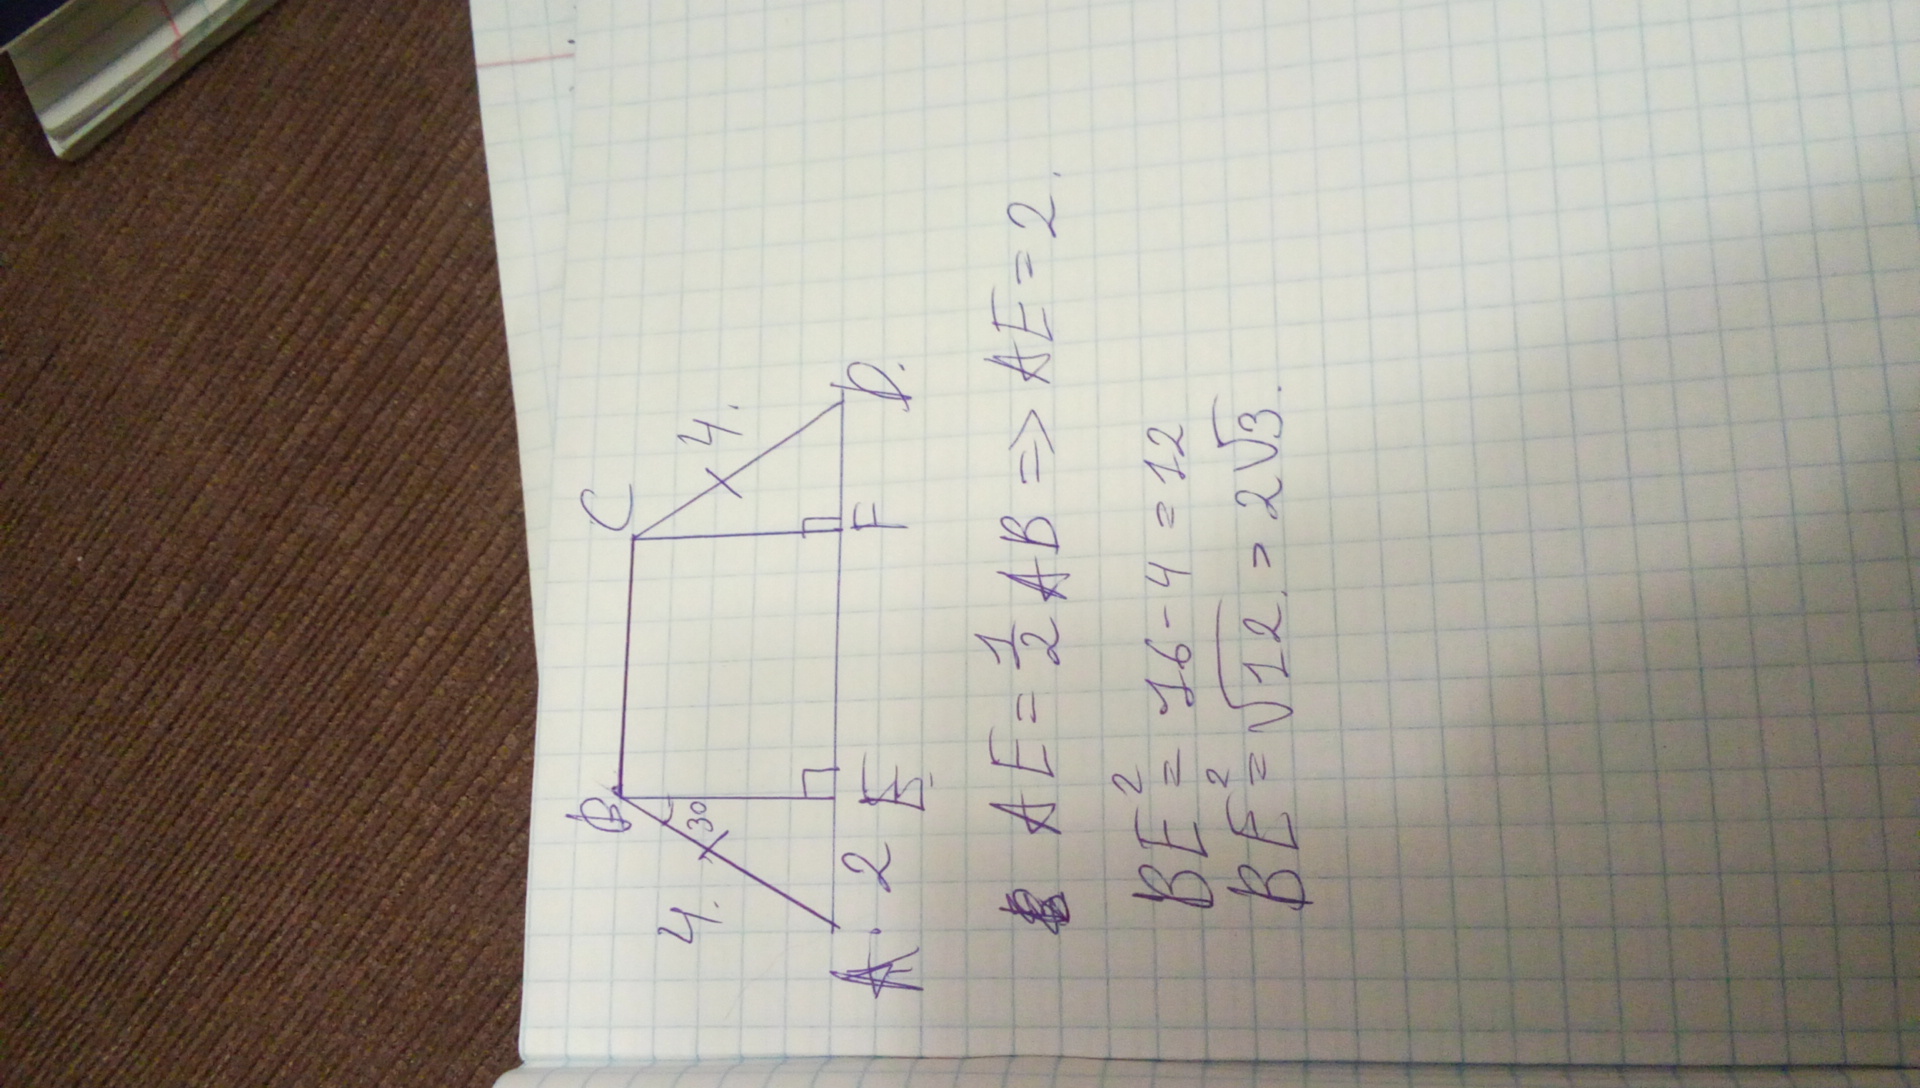 B
C
4.
30
4.
A.
2
E
F
D.
AE = 1/2 AB => AE = 2.
BE² = 16 - 4 = 12
BE² = √12. = 2√3.